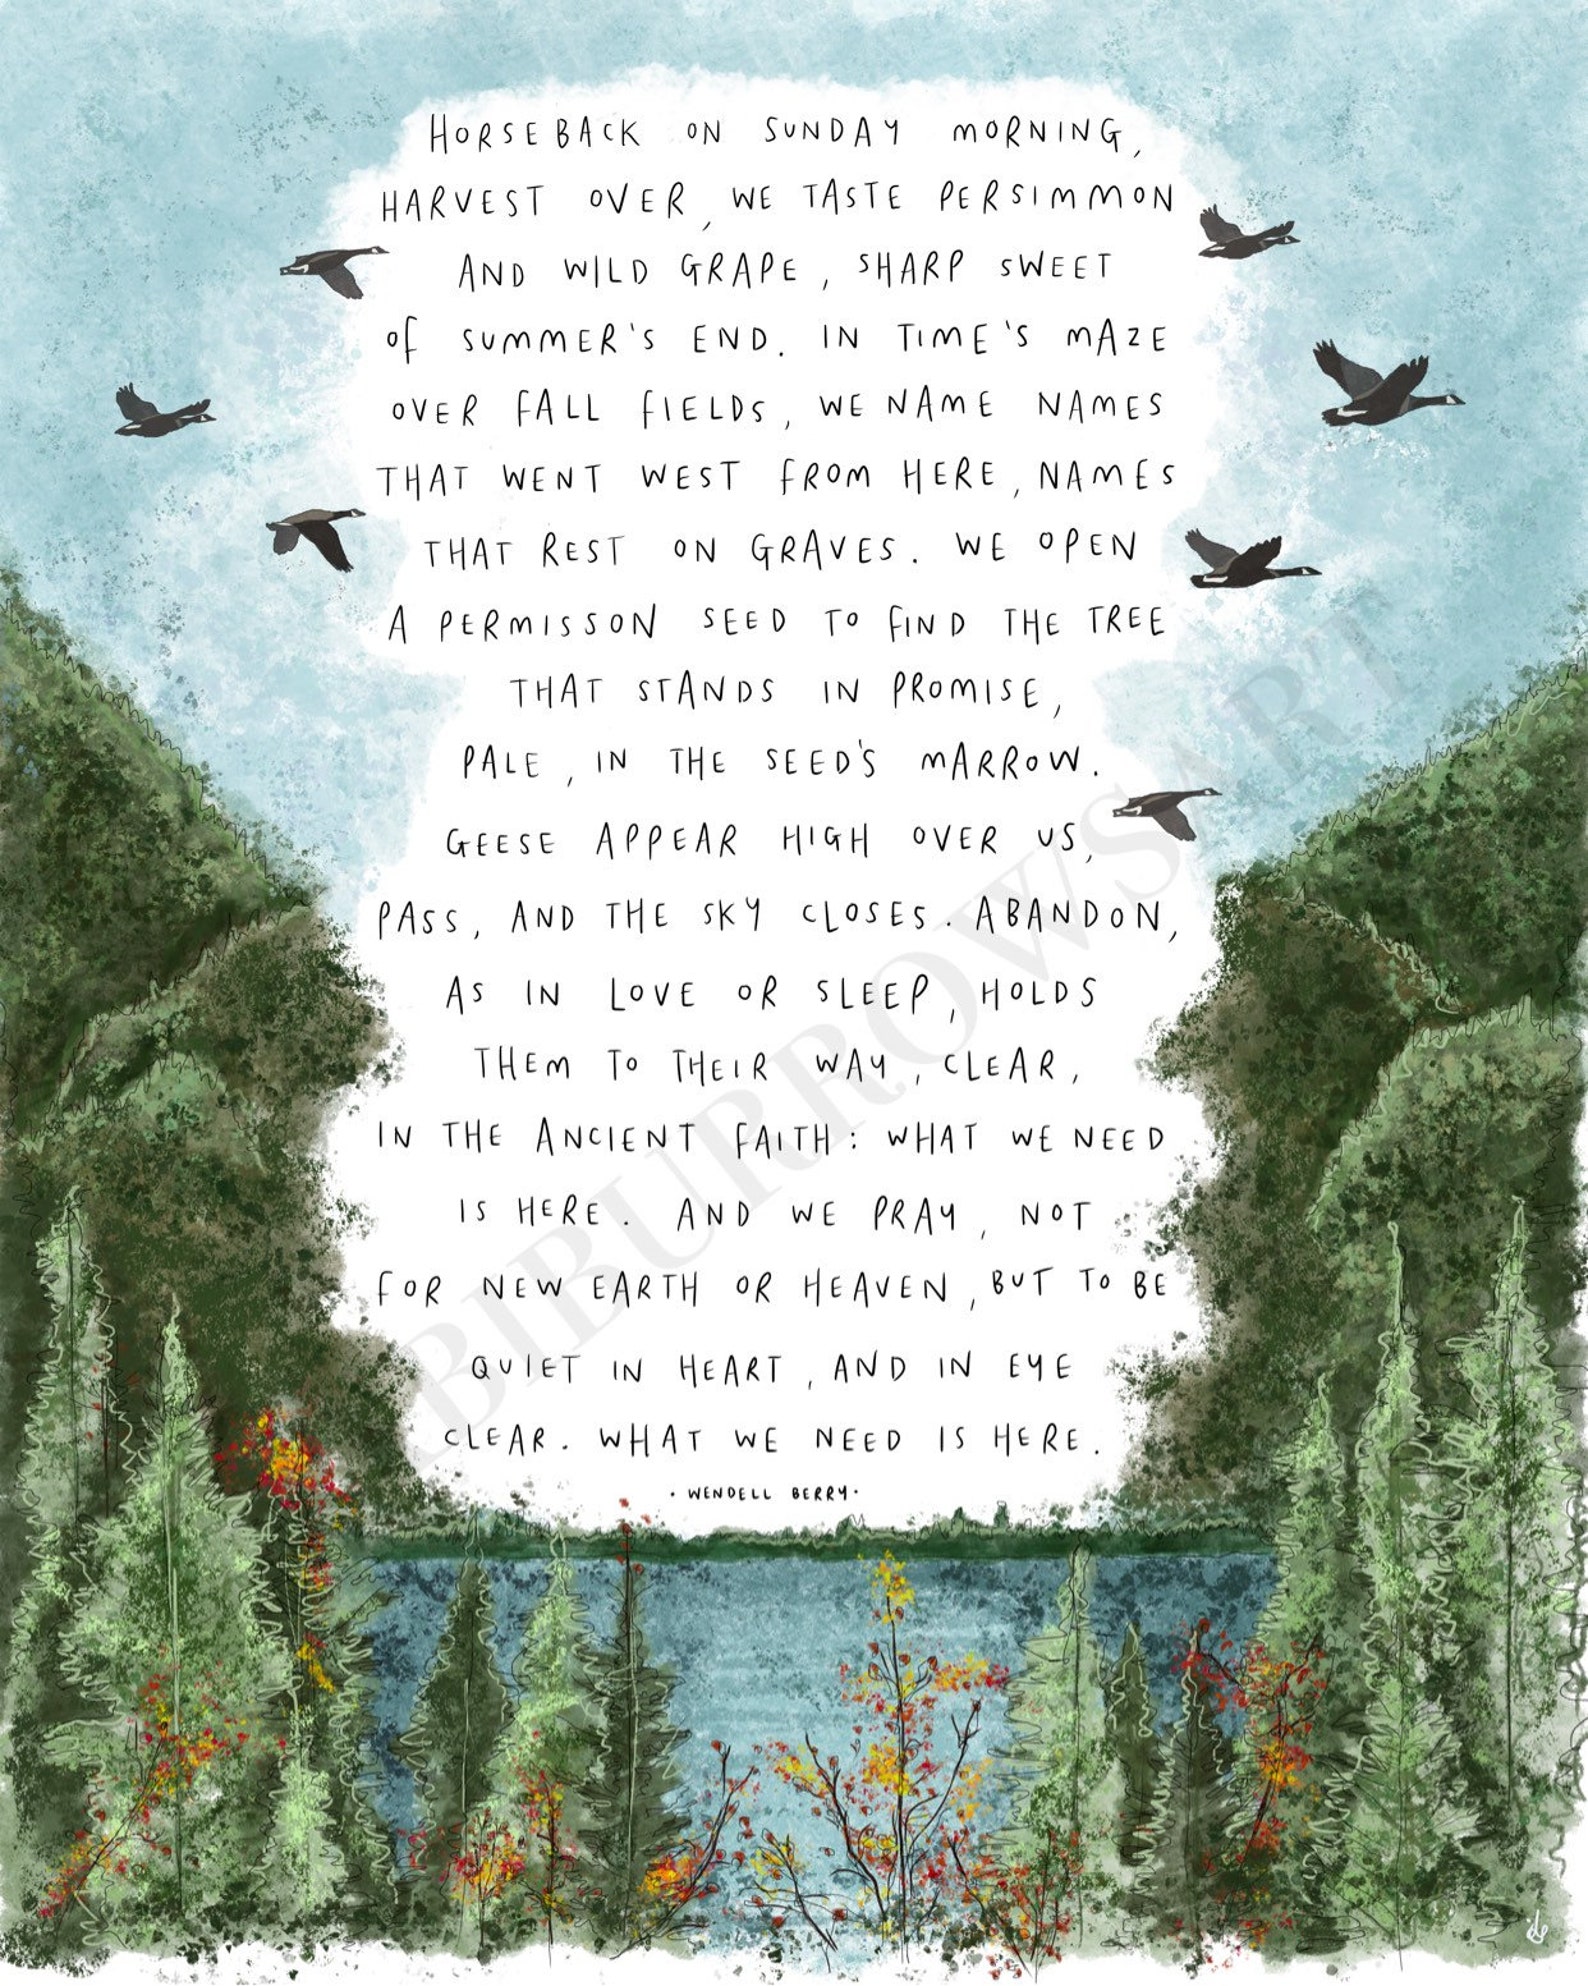 HORSEBACK ON SUNDAY MORNING,
HARVEST OVER, WE TASTE PERSIMMON
AND WILD GRAPE, SHARP SWEET
OF SUMMER'S END. IN TIME'S MAZE
OVER FALL FIELDS, WE NAME NAMES
THAT WENT WEST FROM HERE, NAMES
THAT REST ON GRAVES. WE OPEN
A PERMISSON SEED TO FIND THE TREE
THAT STANDS IN PROMISE,
PALE, IN THE SEED'S MARROW.
GEESE APPEAR HIGH OVER US,
PASS, AND THE SKY CLOSES. ABANDON,
AS IN LOVE OR SLEEP, HOLDS
THEM TO THEIR WAY, CLEAR,
IN THE ANCIENT FAITH: WHAT WE NEED
IS HERE. AND WE PRAY, NOT
FOR NEW EARTH OR HEAVEN, BUT TO BE
QUIET IN HEART, AND IN EYE
CLEAR. WHAT WE NEED IS HERE.
· WENDELL BERRY ·